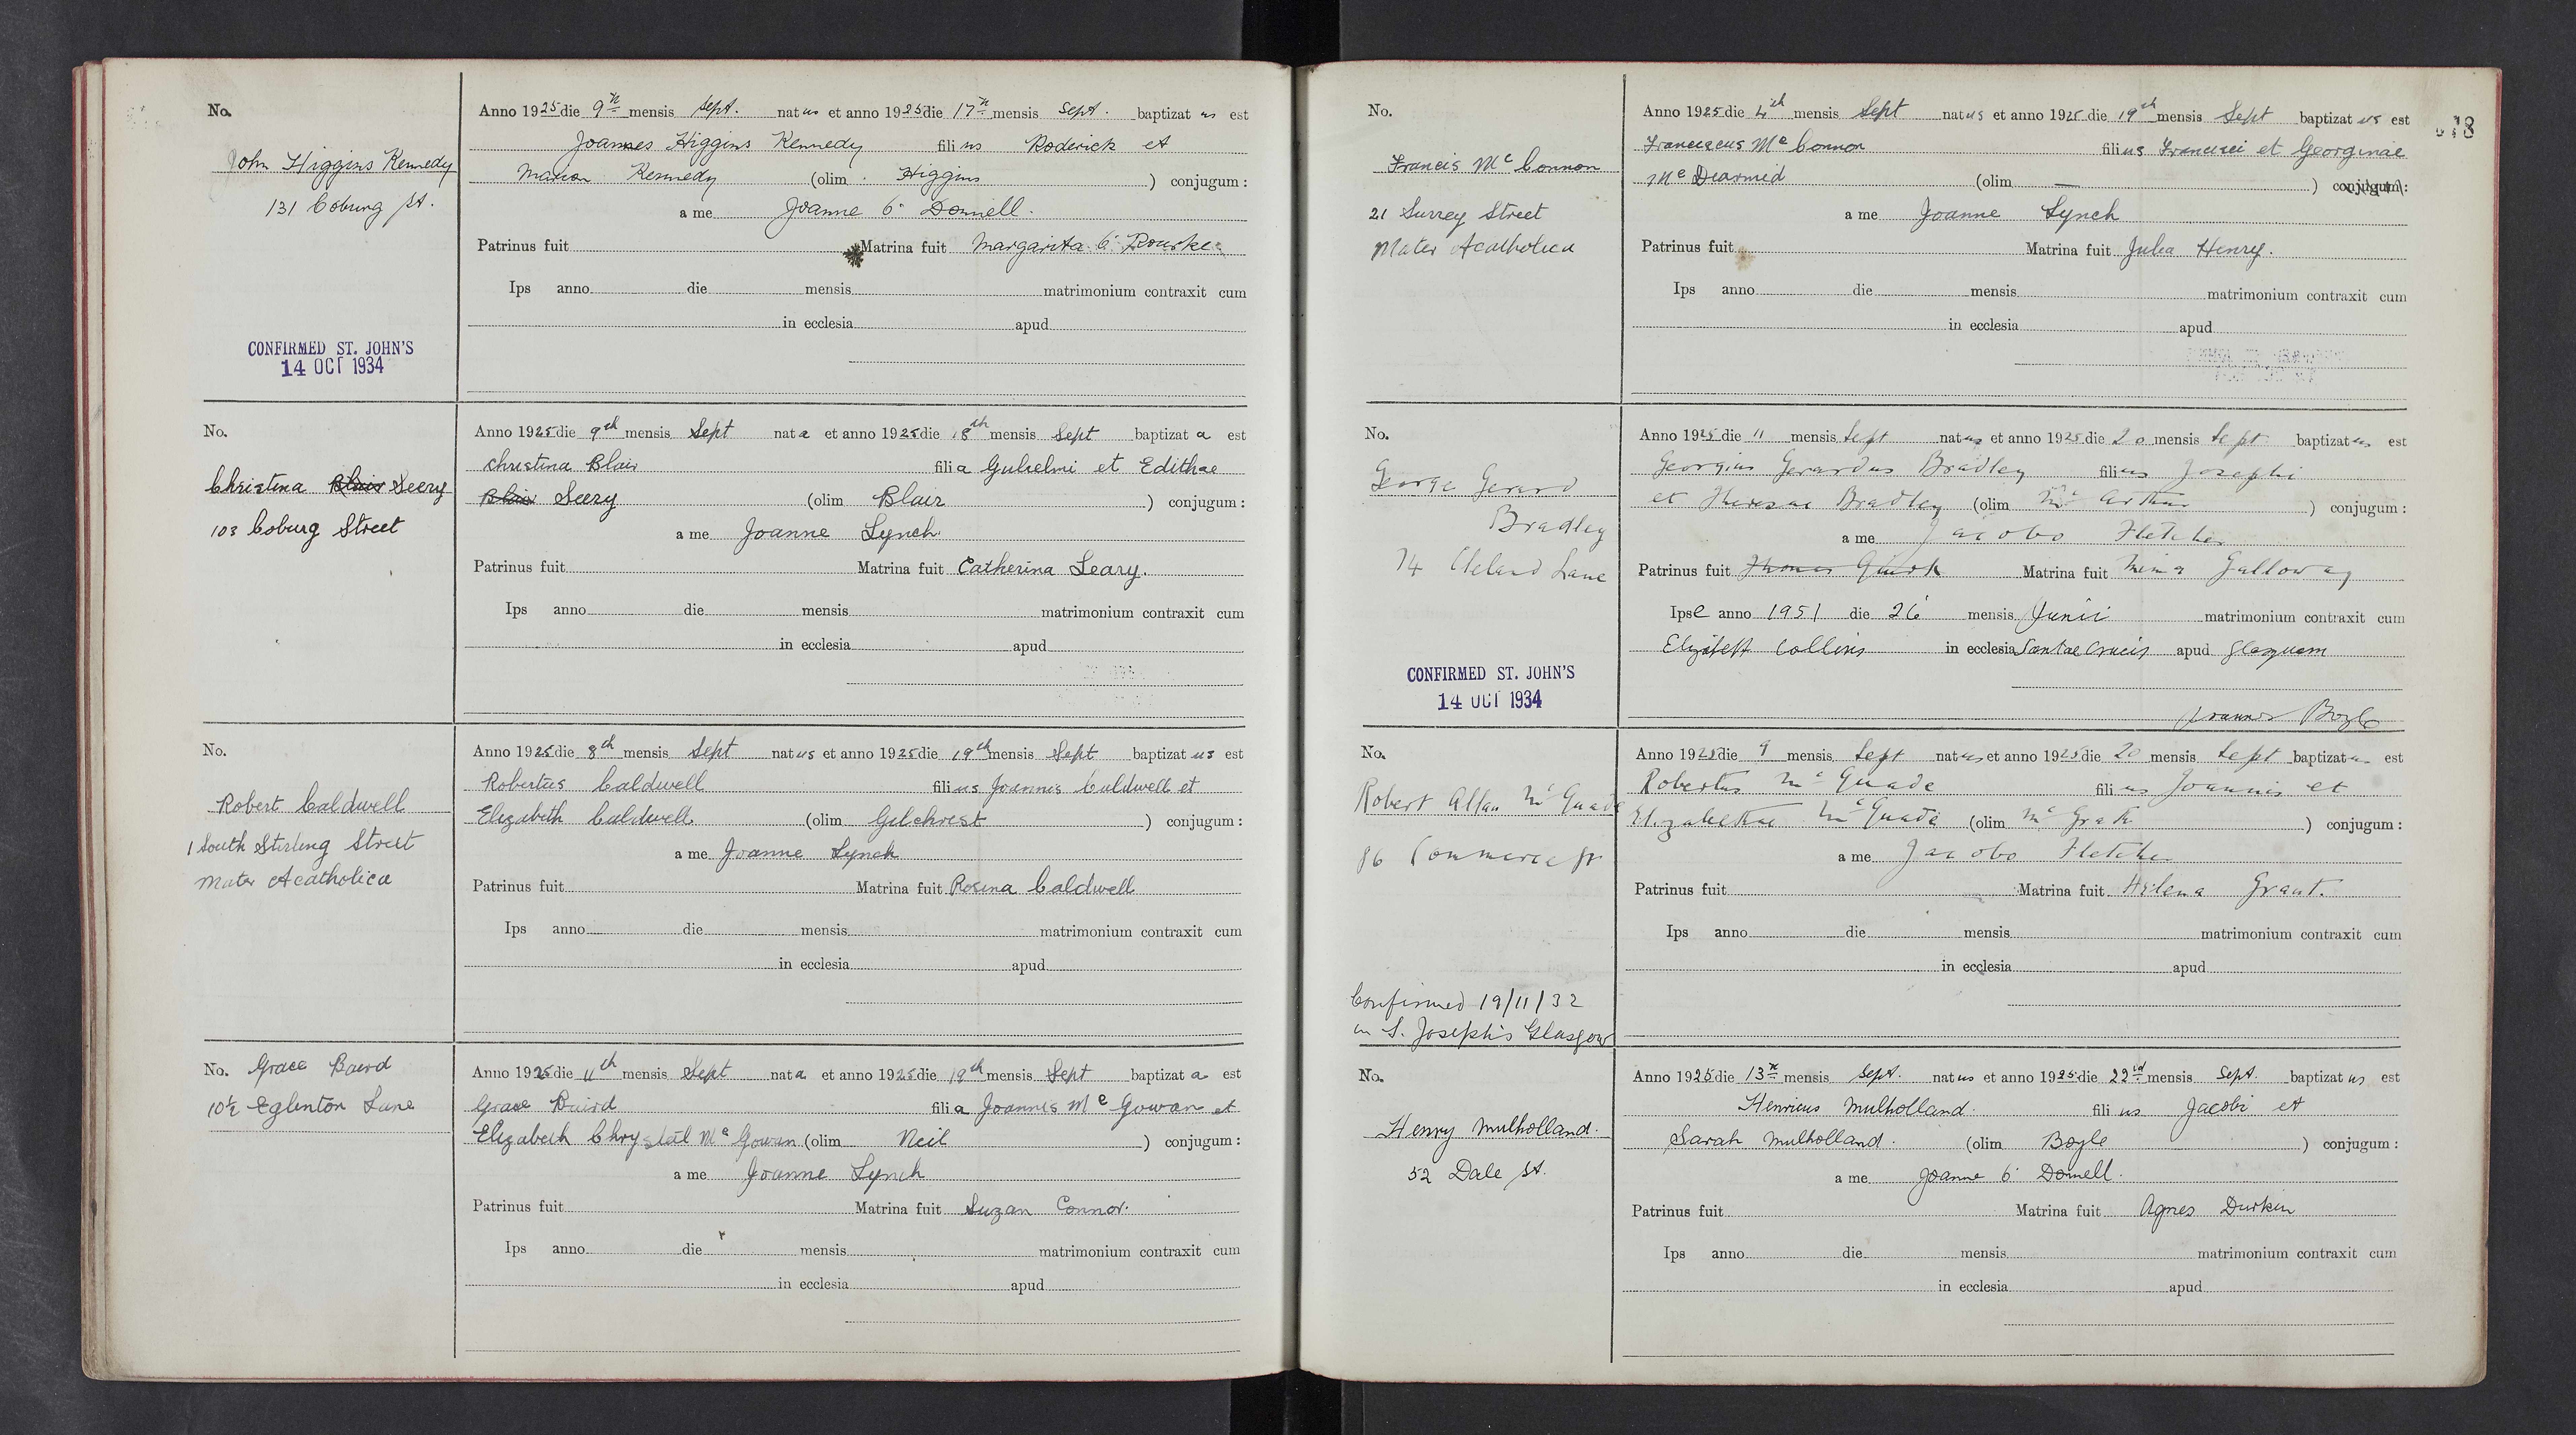 No.
John Higgins Kennedy
131 Coburg St.
CONFIRMED ST. JOHN'S
14 OCT 1934
Anno 1925 die 9th mensis Sept. natus et anno 1925 die 17th mensis Sept. baptizatus est
Joannes Higgins Kennedy filius Roderick et
Marion Kennedy (olim Higgins ) conjugum:
a me Joanne O'Donnell.
Patrinus fuit Matrina fuit Margarita O'Rourke.
Ips anno die mensis matrimonium contraxit cum
in ecclesia apud
No.
Christina Blair Seery
103 Coburg Street
Anno 1925 die 9th mensis Sept nata et anno 1925 die 18th mensis Sept baptizata est
Christina Blair filia Gulielmi et Edithae
Blair Seery (olim Blair ) conjugum:
a me Joanne Lynch.
Patrinus fuit Matrina fuit Catherina Leary.
Ips anno die mensis matrimonium contraxit cum
in ecclesia apud
No.
Robert Caldwell
1 South Stirling Street
Mater Acatholica
Anno 1925 die 8th mensis Sept natus et anno 1925 die 19th mensis Sept baptizatus est
Robertus Caldwell filius Joannis Caldwell et
Elizabeth Caldwell (olim Gilchrist ) conjugum:
a me Joanne Lynch
Patrinus fuit Matrina fuit Rosina Caldwell
Ips anno die mensis matrimonium contraxit cum
in ecclesia apud
No. Grace Baird
10½ Eglinton Lane
Anno 1925 die 11th mensis Sept nata et anno 1925 die 19th mensis Sept baptizata est
Grace Baird filia Joannis Mc Gowan et
Elizabeth Chrystal Mc Gowan (olim Neil ) conjugum:
a me Joanne Lynch
Patrinus fuit Matrina fuit Suzan Connor.
Ips anno die mensis matrimonium contraxit cum
in ecclesia apud
78
No.
Francis Mc Connon
21 Surrey Street
Mater Acatholica
Anno 1925 die 4th mensis Sept natus et anno 1925 die 19th mensis Sept baptizatus est
Franciscus Mc Connon filius Francisci et Georginae
Mc Diarmid (olim — ) conjugum:
a me Joanne Lynch
Patrinus fuit Matrina fuit Julia Henry.
Ips anno die mensis matrimonium contraxit cum
in ecclesia apud
No.
George Gerard
Bradley
74 Cleland Lane
CONFIRMED ST. JOHN'S
14 OCT 1934
Anno 1925 die 11 mensis Sept natus et anno 1925 die 20 mensis Sept baptizatus est
Georgius Gerardus Bradley filius Josephi
et Theresae Bradley (olim Mc Arthur ) conjugum:
a me Jacobo Fletcher
Patrinus fuit Thomas Quirk Matrina fuit Mima Galloway
Ipse anno 1951 die 26 mensis Junii matrimonium contraxit cum
Elizabeth Collins in ecclesia Sanctae Crucis apud Glasguam
Joannes Boyle
No.
Robert Allan McQuade
86 Commerce St
Confirmed 19/11/32
in S. Joseph's Glasgow
Anno 1925 die 9 mensis Sept natus et anno 1925 die 20 mensis Sept baptizatus est
Robertus McQuade filius Joannis et
Elizabethae McQuade (olim McGrath ) conjugum:
a me Jacobo Fletcher
Patrinus fuit Matrina fuit Helena Grant.
Ips anno die mensis matrimonium contraxit cum
in ecclesia apud
No.
Henry Mulholland.
52 Dale St.
Anno 1925 die 13th mensis Sept. natus et anno 1925 die 22nd mensis Sept. baptizatus est
Henricus Mulholland. filius Jacobi et
Sarah Mulholland. (olim Boyle ) conjugum:
a me Joanne O'Donnell.
Patrinus fuit Matrina fuit Agnes Durkin
Ips anno die mensis matrimonium contraxit cum
in ecclesia apud